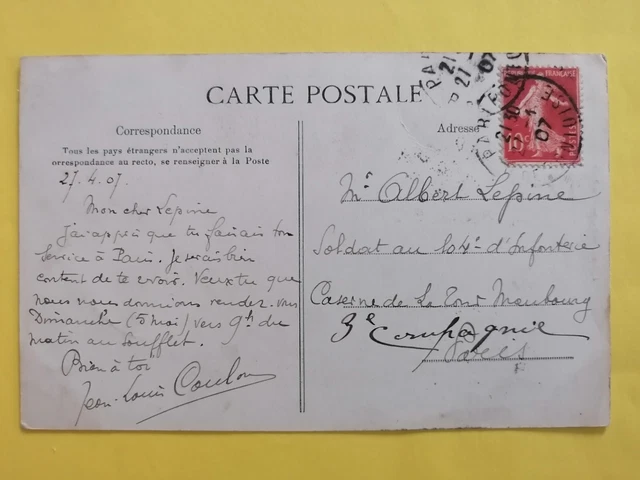 CARTE POSTALE
Correspondance
Tous les pays étrangers n'acceptent pas la
orrespondance au recto, se renseigner à la Poste
27.4.07.
Mon cher Lepine
J'ai appris que tu faisais ton
Service à Paris. Je serais bien
content de te revoir. Veux tu que
nous nous donnions rendez-vous
Dimanche (5 mai) vers 9h du
matin au Soufflet.
Bien à toi
Jean-Louis Coulon
Adresse
Mr Albert Lepine
Soldat au 104e d'Infanterie
Caserne de La Tour Maubourg
3e Compagnie
Paris
FRANÇAISE
10c
21
07